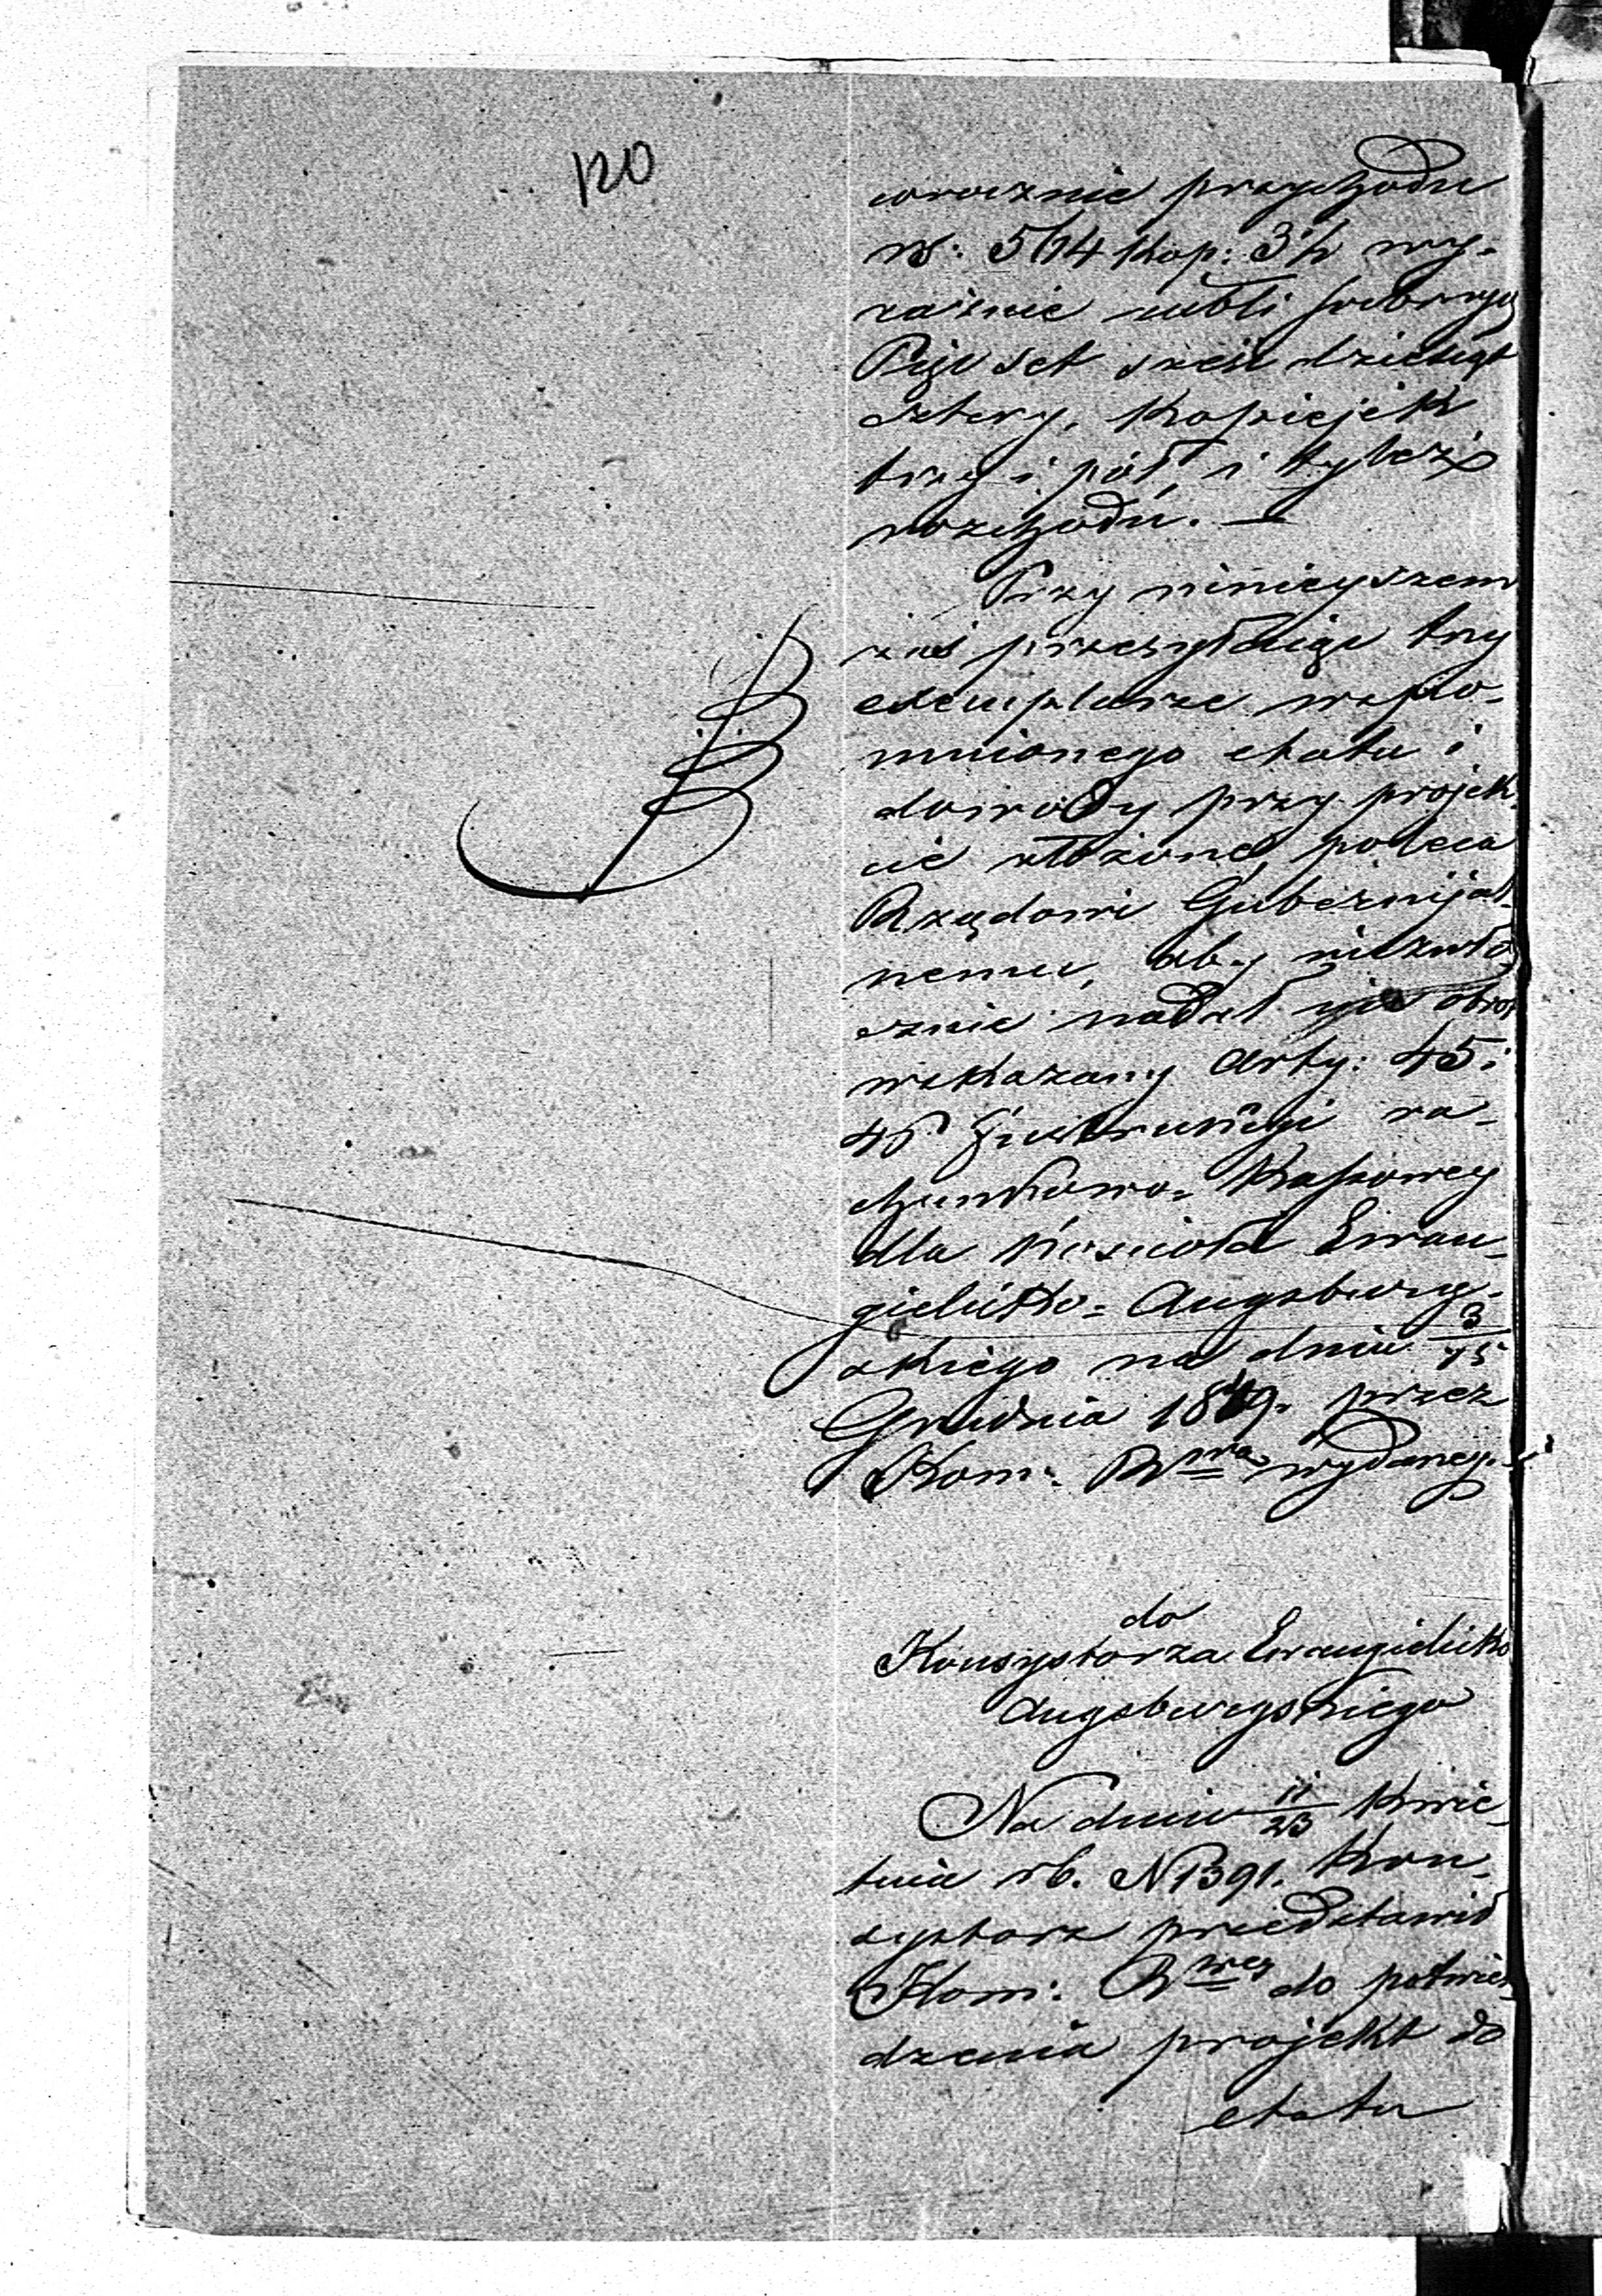 120
corocznie przychodu
rs. 564 kop: 3½ wy-
raźnie rubli srebrnych
Pięćset sześćdziesiąt
cztery, Kopiejek
trzy i pół, i tyleż
rozchodu. —
Przy niniejszem
zaś przesyłaiąc trzy
exemplarze wspo-
mnionego etatu i
dowody przy projek-
cie złożone, poleca
Rządowi Gubernijal-
nemu, aby niezwło-
cznie nadał im obrot
wskazany Arty: 45 i
46 Instrukcyi ra-
chunkowo-Kassowey
dla Kościoła Ewan-
gielicko-Augsburg-
skiego na dniu 3/15
Grudnia 1849. przez
Kom: R^wą wydaney.
do
Konsystorza Ewangielicko
Augsburgskiego
Na dniu 11/23 Kwie-
tnia rb. N 1391. Kon-
systorz przedstawił
Kom: R^wey do potwier-
dzenia projekt do
etatu